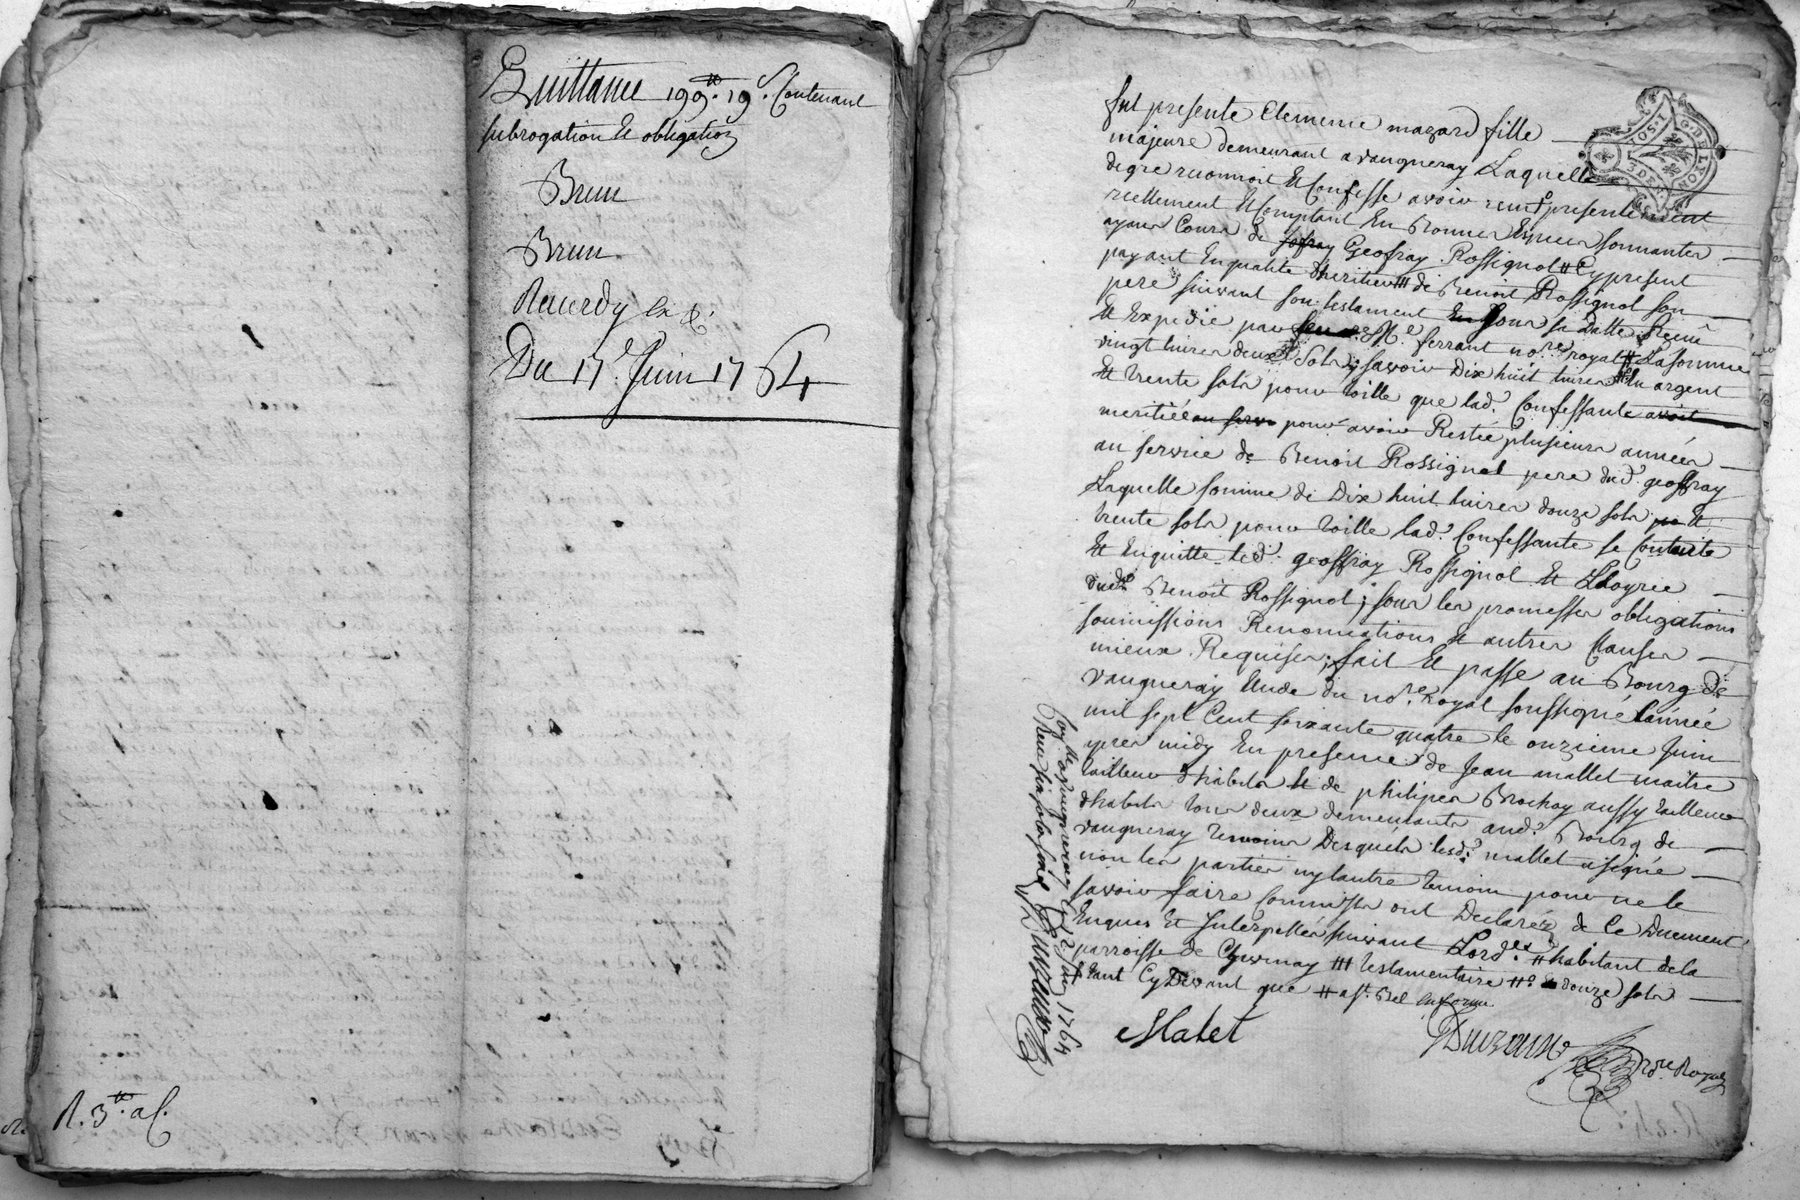 Quittance 199.tt 19.s Contenant
subrogation et obligation
Brun
Brun
Du 17.e Juin 1764
R. 3.tt
fut presente Clemence mazard fille
majeure demeurant a vaugneray Laquelle
de gre reconnoit et Confesse avoir recu presentement
reellement et Comptant En Bonnes Especes sonnantes
ayant Cours de Jofray Geofray Rossignol # Cy present
payant En qualité d'heritier ### de Benoit Rossignol son
pere suivant son testament sous sa Datte Recu
et Expedié par Me. ferrant nore. royal # La somme
vingt livres deux Sols, savoir Dix huit livres #o En argent
et trente sols pour toille que lad. Confessante avoit
meritée au serv pour avoir Restée plusieurs années
au service de Benoit Rossignol pere dud. geoffray
Laquelle somme de Dix huit livres douze sols et
trente sols pour toille lad. Confessante se Contente
et En quitte led. geoffray Rossignol et L'hoyrie
dud. Benoit Rossignol; sous les promesses obligations
soumissions Renonciations et autres Clauses
mieux Requises; fait et passé au Bourg De
vaugneray Etude du nore. Royal soussigné L'année
mil sept Cent soixante quatre le onzieme Juin
apres midy En presence de Jean mallet maitre
tailleur d'habits et de philipes Brochay aussy tailleur
d'habits tous deux demeurants aud. Bourg de
vaugneray temoins Desquels led. mallet a signé
non les parties ny l'autre temoin pour ne le
savoir faire comme ils ont Declarés de Ce Duement
Enquis et Interpellés suivant L'ord. # habitant de la
parroisse de ### testamentaire #o douze sols
tant Cy Devant que # a st. Bel
Malet
nore. Royal
Con.lle a vaugneray le 12 Juin 1764
Recu six sols six